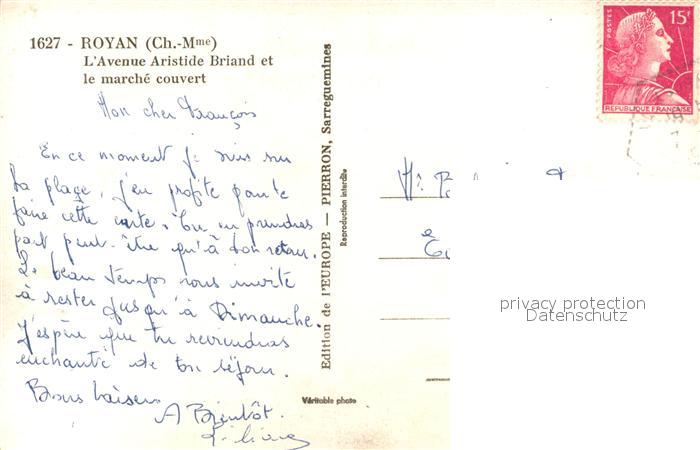 1627 - ROYAN (Ch.-Mme)
L'Avenue Aristide Briand et
le marché couvert
Mon cher François
En ce moment je suis sur
la plage, j'en profite pour te
faire cette carte. Tu en prendras
part peut-être qu'à ton retour.
Le beau temps nous invite
à rester jusqu'à Dimanche.
J'espère que tu reviendras
enchanté de ton séjour.
Bons baisers
A Bientôt.
Edition de l'EUROPE — PIERRON, Sarreguemines
Reproduction interdite
Véritable photo
POSTES
15F
REPUBLIQUE FRANÇAISE
privacy protection
Datenschutz